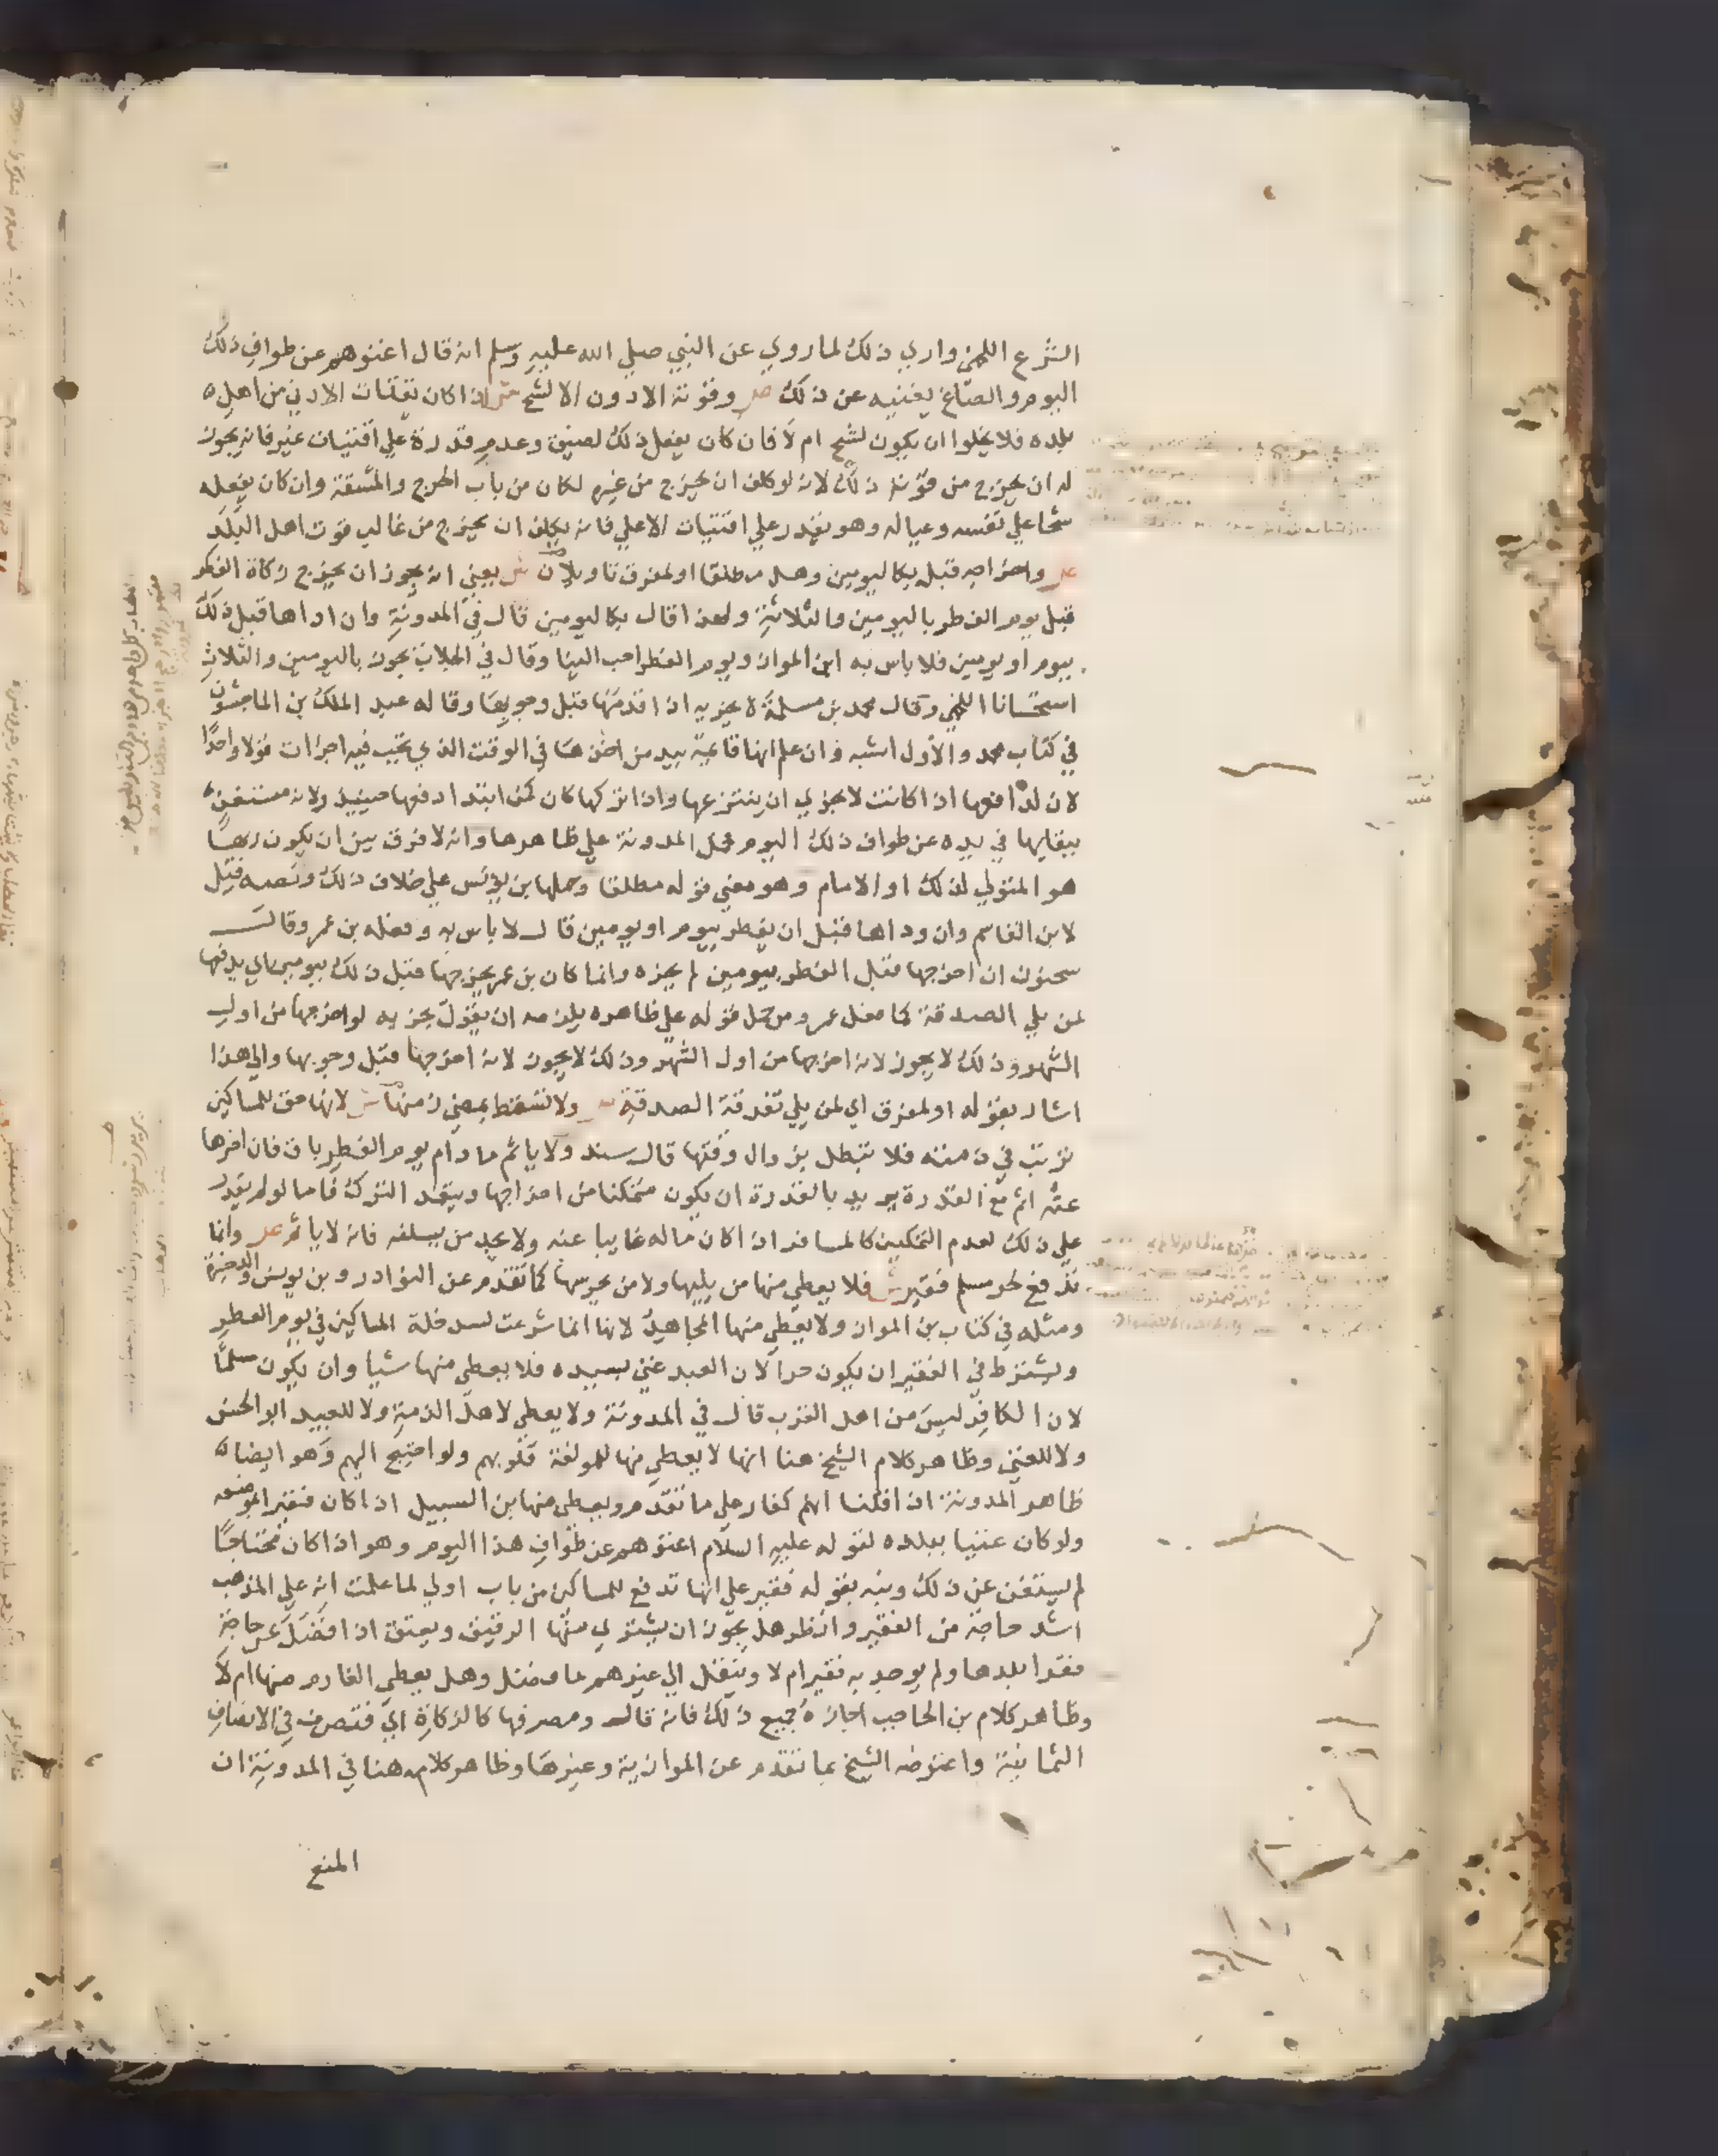 الشرع اللخمي واري ذلك لما روي عن النبي صلي الله عليه وسلم انه قال اغنوهم عن طواف ذلك
اليوم والصاع يغنيه عن ذلك ص وقوته الادون الا لشح ش اذا كان يقتات الادني من اهل
بلده فلا يخلوا ان يكون لشح ام لا فان كان يفعل ذلك لضيق وعدم قدرة علي اقتيات غيره فانه يجوز
له ان يخرج من قوته ذلك لانه لو كلف ان يخرج من غيره لكان من باب الحرج والمشقة وان كان يفعله
شحا علي نفسه وعياله وهو يقدر علي اقتيات الاعلي فانه يكلف ان يخرج من غالب قوت اهل البلد
ص واخراجه قبل بكاليومين وهل مطلقا او لمفرق تاويلان ش يعني انه يجوز ان يخرج زكاة الفطر
قبل يوم الفطر باليومين والثلاثة ولهذا قال بكاليومين قال في المدونة وان اداها قبل ذلك
بيوم او يومين فلا باس به ابن المواز ويوم الفطر احب الينا وقال في الجلاب يجوز باليومين والثلاث
استحسانا اللخمي وقال محمد بن مسلمة يجزيه اذا قدمها قبل وجوبها وقاله عبد الملك بن الماجشون
في كتاب محمد والاول اشبه وان علم انها قائمة بيد من اخذها في الوقت الذي تجب فيه اجزات قولا واحدا
لان لدافعها اذا كانت لا تجزي ان ينتزعها واذا تركها كان كمن ابتدا دفعها حينيذ ولانه مستغن
ببقايها في يده عن طواف ذلك اليوم محمل المدونة علي ظاهرها وانه لا فرق بين ان يكون ربها
هو المتولي لذلك او الامام وهو معني قوله مطلقا وحملها بن يونس علي خلاف ذلك ونصه قيل
لابن القاسم وان وداها قبل ان يفطر بيوم او يومين قال لا باس به وفعله بن عمر وقال
سحنون ان اخرجها قبل الفطر بيومين لم يجزه وانما كان بن عمر يخرجها قبل ذلك بيومين اي يدفعها
لمن يلي الصدقة كما فعل عمر ومن حمل قوله علي ظاهره يلزمه ان يقول يجزيه لو اخرجها من اول
الشهر وذلك لا يجوز لانه اخرجها من اول الشهر وذلك لا يجوز لانه اخرجها قبل وجوبها والي هذا
اشار بقوله او لمفرق اي لمن يلي تفرقة الصدقة ص ولا تسقط بمضي زمنها ش لانها حق للمساكين
ترتب في ذمته فلا تبطل بزوال وقتها قال سند ولا ياثم ما دام يوم الفطر باق فان اخرها
عنه اثم مع القدرة يريد بالقدرة ان يكون متمكنا من اخراجها ويتعمد الترك فاما لو لم يقدر
علي ذلك لعدم التمكين كالمسافر اذا كان ماله غايبا عنه ولا يجد من يسلفه فانه لا ياثم ص وانما
تدفع لحر مسلم فقير ش فلا يعطي منها من يليها ولا من يحرسها كما تقدم عن النوادر وبن يونس والذخيرة
ومثله في كتاب بن المواز ولا يعطي منها المجاهد لانها انما شرعت لسد خلة المساكين في يوم الفطر
ويشترط في الفقير ان يكون حرا لان العبد غني بسيده فلا يعطي منها شيا وان يكون مسلما
لان الكافر ليس من اهل القرب قال في المدونة ولا يعطي لاهل الذمة ولا للعبيد ابو الحسن
ولا للغني وظاهر كلام الشيخ هنا انها لا يعطي منها للمولفة قلوبهم ولو احتيج اليهم وهو ايضا
ظاهر المدونة اذا قلنا انهم كفار علي ما تقدم ويعطي منها بن السبيل اذا كان فقير الموضعه
ولو كان غنيا ببلده لقوله عليه السلام اغنوهم عن طواف هذا اليوم وهو اذا كان محتاجا
لم يستغن عن ذلك ونبه بقوله فقير علي انها تدفع للمساكين من باب اولي لما علمت انه علي المذهب
اشد حاجة من الفقير وانظر هل يجوز ان يشتري منها الرقيق ويعتق اذا فضل عن حاجة
فقرا بلدها ولم يوجد به فقير ام لا وينقل الي غيرهم ما فضل وهل يعطي الغارم منها ام لا
وظاهر كلام بن الحاجب اجازة جميع ذلك فانه قال ومصرفها كالزكاة اي فتصرف في الاصناف
الثمانية واعترضه الشيخ بما تقدم عن الموازية وغيرها وظاهر كلامه هنا في المدونة ان
المنع